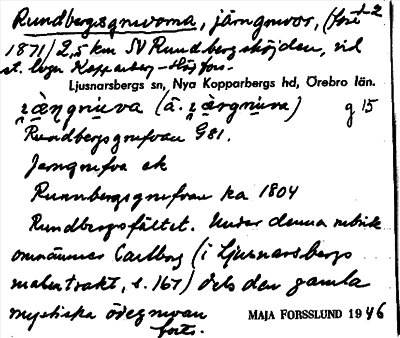 Rundbergsgruvorna, järngruvor, (före 1-2
1871) 2,5 km SV Rundbergshöjden, vid
st. vägen Kopparberg - Högfors.
Ljusnarsbergs sn, Nya Kopparbergs hd, Örebro län.
g 15
Rundbergsgrufvan G81.
Jerngrufva ek
Runnbergsgrufvan ka 1804
Rundbergsfältet. Under denna rubrik
omnämner Carlborg (i Ljusnarsbergs
malmtrakt, s. 167) dels den gamla
mystiska ödegruvan
forts.
MAJA FORSSLUND 1946